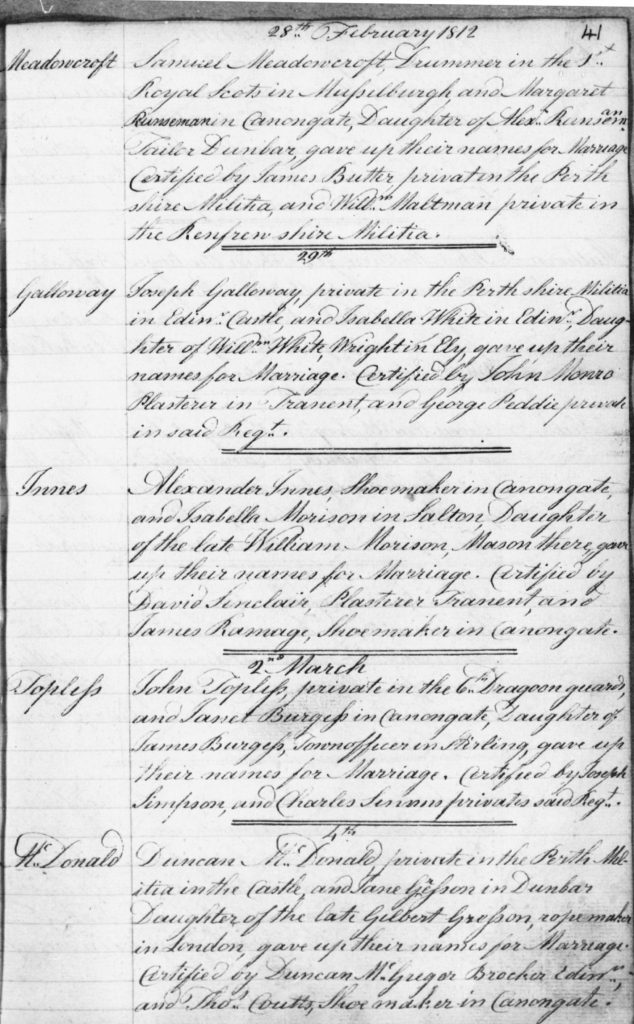 28th February 1812 41
Meadowcroft Samuel Meadowcroft, Drummer in the 1st
Royal Scots in Musselburgh and Margaret
Runseman in Canongate, Daughter of Alexr Runsoman
Tailor Dunbar, gave up their names for Marriage
Certified by James Butter privat in the Perth
shire Militia, and Willm Maltman private in
the Renfrew shire Militia.
29th
Galloway Joseph Galloway, private in the Perth shire Militia
in Edinr Castle, and Isabella White in Edinr, Daug-
hter of Willm White, Wright in Ely, gave up their
names for Marriage. Certified by John Monro
Plasterer in Tranent, and George Peddie private
in said Regt.
Innes Alexander Innes, Shoemaker in Canongate,
and Isabella Morison in Salton, Daughter
of the late William Morison, Mason there, gave
up their names for Marriage. Certified by
David Sinclair, Plasterer Tranent, and
James Ramage, Shoemaker in Canongate.
2nd March
Topless John Topless, private in the 6th Dragoon guards,
and Janet Burgess in Canongate, Daughter of
James Burgess, Townofficer in Stirling, gave up
their names for Marriage. Certified by Joseph
Simpson, and Charles privates said Regt.
4th
Mc Donald Duncan Mc Donald, private in the Perth Mil-
itia in the Castle, and Jane in Dunbar
Daughter of the late Gilbert, rope maker
in London, gave up their names for Marriage.
Certified by Duncan McGregor Brocker Edinr,
and Thos Coutts, Shoemaker in Canongate.